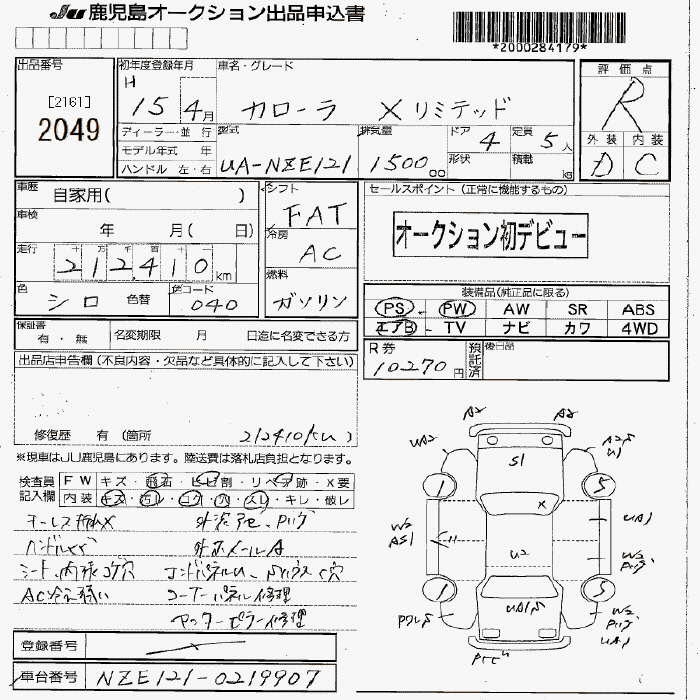 JU 鹿児島オークション出品申込書
*2000284179*
出品番号
[2161]
2049
初年度登録年月
H
15 4月
車名・グレード
カローラ Xリミテッド
評価点
R
外装 内装
D C
ディーラー・並 行
モデル年式 年
ハンドル 左・右
型式
UA-NZE121
排気量
1500 cc
ドア 4
形状
定員 5人
積載 kg
車歴 自家用( )
車検 年 月( 日)
走行 十 万 千 百 十 一
212,410 km
色 シロ 色替
色コード 040
シフト
FAT
冷房
AC
燃料
ガソリン
セールスポイント (正常に機能するもの)
オークション初デビュー
装備品(純正品に限る)
PS PW AW SR ABS
エアB TV ナビ カワ 4WD
保証書 有・無
名変期限 月 日迄に名変できる方
R券
10270円
預託済
後日品
出品店申告欄(不良内容・欠品など具体的に記入して下さい)
修復歴 有 (箇所 212410km )
※現車はJU鹿児島にあります。陸送費は落札店負担となります。
検査員記入欄
FW キズ・飛石・ヒビ割・リペア跡・X要
内装 キズ・汚レ・コゲ・穴・スレ・キレ・破レ
シート、内張コゲ穴
コーナーパネル修理
センターピラー修理
A2 A2
UA2 A2S
U1
S1
1 5
X
W2
AS1
U2
UA1
W2
1 5
UA1S
W2
UA1
登録番号
車台番号 NZE121-0219907